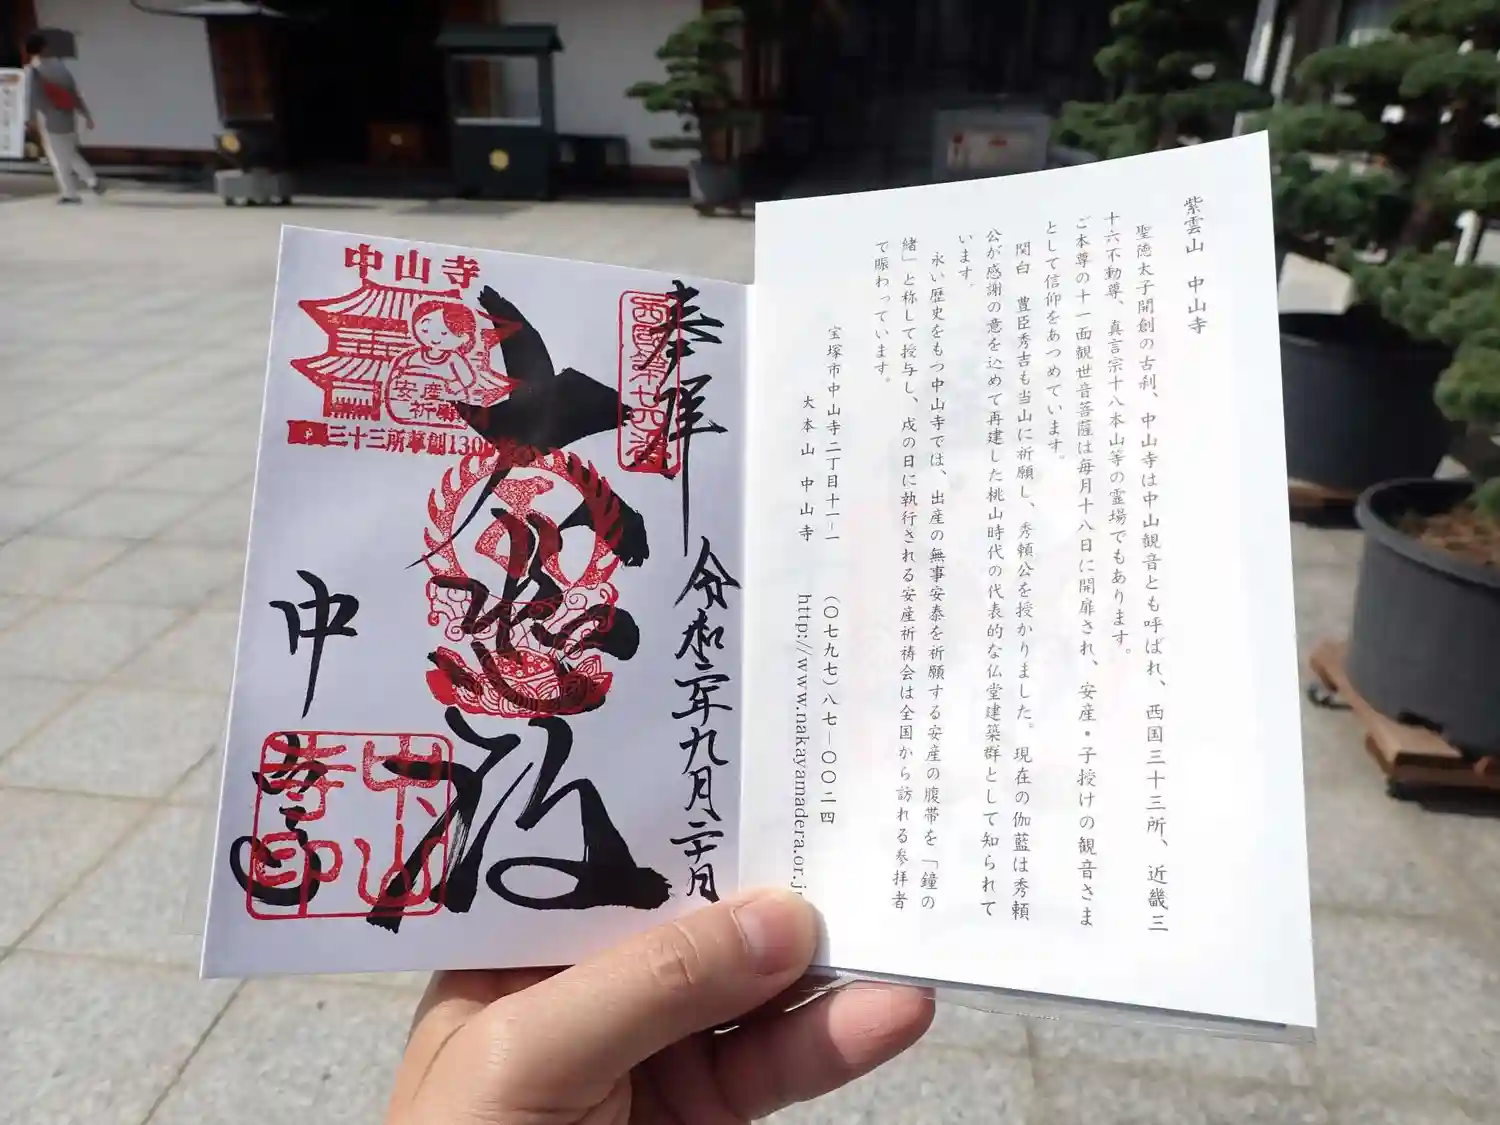 紫雲山 中山寺
聖徳太子開創の古刹、中山寺は中山観音とも呼ばれ、西国三十三所、近畿三
十六不動尊、真言宗十八本山等の霊場でもあります。
ご本尊の十一面観世音菩薩は毎月十八日に開扉され、安産・子授けの観音さま
として信仰をあつめています。
関白 豊臣秀吉も当山に祈願し、秀頼公を授かりました。現在の伽藍は秀頼
公が感謝の意を込めて再建した桃山時代の代表的な仏堂建築群として知られて
います。
永い歴史をもつ中山寺では、出産の無事安泰を祈願する安産の腹帯を「鐘の
緒」と称して授与し、戌の日に執行される安産祈祷会は全国から訪れる参拝者
で賑わっています。
宝塚市中山寺二丁目十一-一 (〇七九七)八七-〇〇二四
大本山 中山寺 http://www.nakayamadera.or.j
奉拝
西国第廿四番
令和二年九月二十日
大悲殿
中山寺
安産
祈願
三十三所草創130
中山寺
中山
寺印